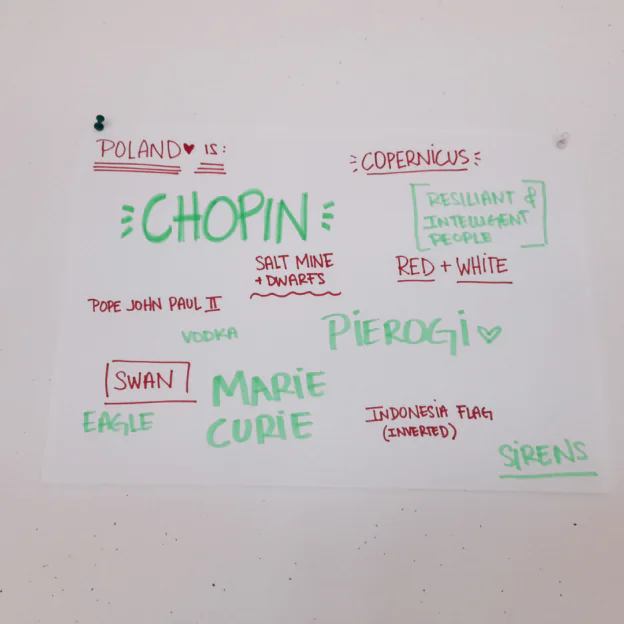 POLAND♥ IS:
COPERNICUS
CHOPIN
RESILIANT &
INTELLIGENT
PEOPLE
SALT MINE
+ DWARFS
RED + WHITE
POPE JOHN PAUL II
VODKA
PIEROGI ♡
SWAN
MARIE
CURIE
EAGLE
INDONESIA FLAG
(INVERTED)
SIRENS